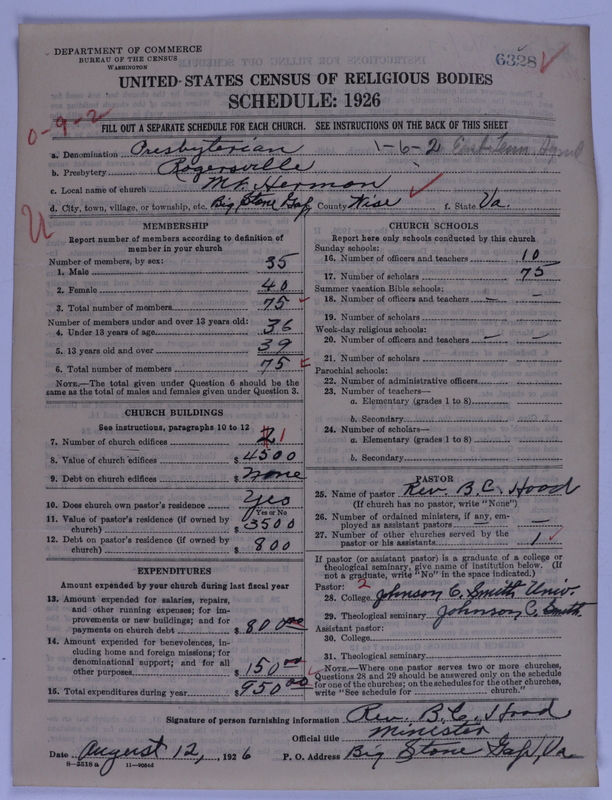 DEPARTMENT OF COMMERCE
BUREAU OF THE CENSUS
WASHINGTON
6328
UNITED STATES CENSUS OF RELIGIOUS BODIES
SCHEDULE: 1926
0-9-2
FILL OUT A SEPARATE SCHEDULE FOR EACH CHURCH. SEE INSTRUCTIONS ON THE BACK OF THIS SHEET
a. Denomination Presbyterian 1-6-2
b. Presbytery Rogersville
c. Local name of church Mt. Hermon
d. City, town, village, or township, etc. Big Stone Gap County Wise f. State Va.
MEMBERSHIP
Report number of members according to definition of member in your church
Number of members, by sex:
1. Male 35
2. Female 40
3. Total number of members 75
Number of members under and over 13 years old:
4. Under 13 years of age 36
5. 13 years old and over 39
6. Total number of members 75
NOTE.—The total given under Question 6 should be the same as the total of males and females given under Question 3.
CHURCH BUILDINGS
See instructions, paragraphs 10 to 12
7. Number of church edifices 2 1
8. Value of church edifices $ 4500
9. Debt on church edifices $ None
10. Does church own pastor's residence Yes
Yes or No
11. Value of pastor's residence (if owned by church) $ 3500
12. Debt on pastor's residence (if owned by church) $ 800
EXPENDITURES
Amount expended by your church during last fiscal year
13. Amount expended for salaries, repairs, and other running expenses; for improvements or new buildings; and for payments on church debt $ 800 00
14. Amount expended for benevolences, including home and foreign missions; for denominational support; and for all other purposes $ 150 00
15. Total expenditures during year $ 950 00
CHURCH SCHOOLS
Report here only schools conducted by this church
Sunday schools:
16. Number of officers and teachers 10
17. Number of scholars 75
Summer vacation Bible schools:
18. Number of officers and teachers — —
19. Number of scholars
Week-day religious schools:
20. Number of officers and teachers — —
21. Number of scholars
Parochial schools:
22. Number of administrative officers
23. Number of teachers—
a. Elementary (grades 1 to 8)
b. Secondary
24. Number of scholars—
a. Elementary (grades 1 to 8)
b. Secondary
PASTOR
25. Name of pastor Rev. B. C. Hood
(If church has no pastor, write "None")
26. Number of ordained ministers, if any, employed as assistant pastors —
27. Number of other churches served by the pastor or his assistants 1
If pastor (or assistant pastor) is a graduate of a college or theological seminary, give name of institution below. (If not a graduate, write "No" in the space indicated.)
Pastor: 2
28. College Johnson C. Smith Univ.
29. Theological seminary Johnson C. Smith
Assistant pastor:
30. College
31. Theological seminary
NOTE.—Where one pastor serves two or more churches, Questions 28 and 29 should be answered only on the schedule for one of the churches; on the schedules for the other churches, write "See schedule for church."
Signature of person furnishing information Rev. B. C. Hood
Official title Minister
Date August 12, 1926 P. O. Address Big Stone Gap, Va
8-2518 a